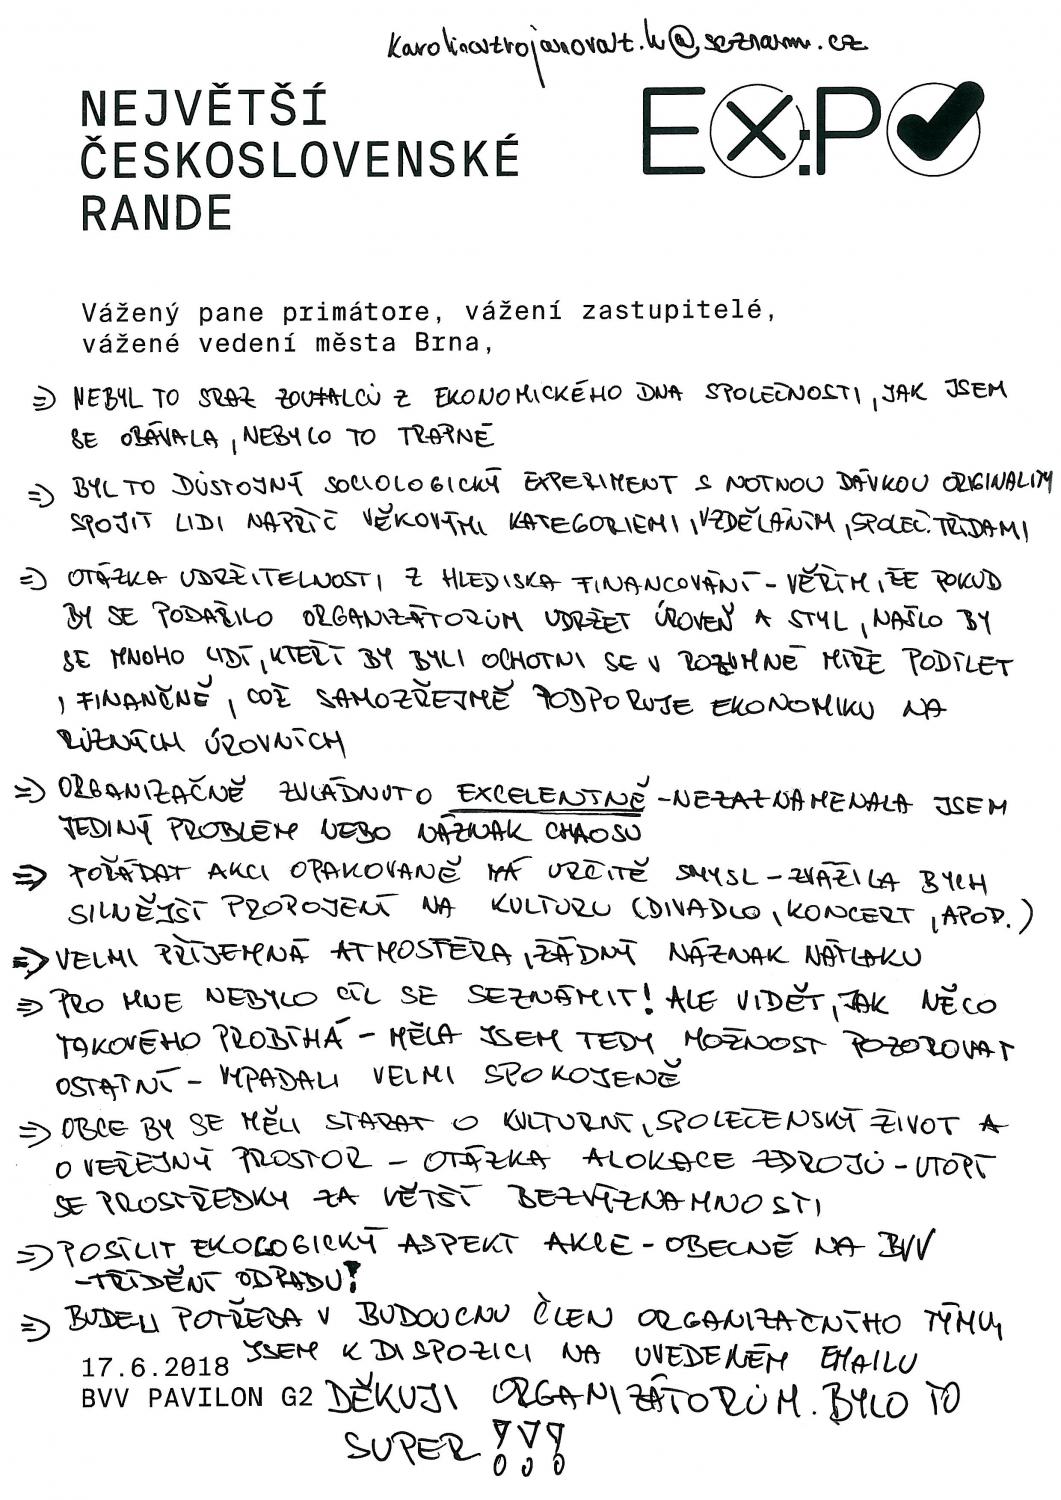 karolinatrojanovat.k@seznam.cz
NEJVĚTŠÍ
ČESKOSLOVENSKÉ
RANDE
EX:P✓
Vážený pane primátore, vážení zastupitelé,
vážené vedení města Brna,
⇒ NEBYL TO SRAZ ZOUFALCŮ Z EKONOMICKÉHO DNA SPOLEČNOSTI, JAK JSEM
SE OBÁVALA, NEBYLO TO TRAPNÉ
⇒ BYL TO DŮSTOJNÝ SOCIOLOGICKÝ EXPERIMENT S NOTNOU DÁVKOU ORIGINALITY
SPOJIT LIDI NAPŘÍČ VĚKOVÝMI KATEGORIEMI, VZDĚLÁNÍM, SPOLEČ. TŘÍDAMI
⇒ OTÁZKA UDRŽITELNOSTI Z HLEDISKA FINANCOVÁNÍ - VĚŘÍM, ŽE POKUD
BY SE PODAŘILO ORGANIZÁTORŮM UDRŽET ÚROVEŇ A STYL, NAŠLO BY
SE MNOHO LIDÍ, KTEŘÍ BY BYLI OCHOTNI SE V ROZUMNÉ MÍŘE PODÍLET
I FINANČNĚ, COŽ SAMOZŘEJMĚ PODPORUJE EKONOMIKU NA
RŮZNÝCH ÚROVNÍCH
⇒ ORGANIZAČNĚ ZVLÁDNUTO EXCELENTNĚ - NEZAZNAMENALA JSEM
JEDINÝ PROBLÉM NEBO NÁZNAK CHAOSU
⇒ POŘÁDAT AKCI OPAKOVANĚ MÁ URČITĚ SMYSL - ZVÁŽILA BYCH
SILNĚJŠÍ PROPOJENÍ NA KULTURU (DIVADLO, KONCERT, APOD.)
⇒ VELMI PŘÍJEMNÁ ATMOSFÉRA, ŽÁDNÝ NÁZNAK NÁTLAKU
⇒ PRO MNE NEBYLO CÍL SE SEZNÁMIT! ALE VIDĚT, JAK NĚCO
TAKOVÉHO PROBÍHÁ - MĚLA JSEM TEDY MOŽNOST POZOROVAT
OSTATNÍ - VYPADALI VELMI SPOKOJENĚ
⇒ OBCE BY SE MĚLI STARAT O KULTURNÍ, SPOLEČENSKÝ ŽIVOT A
O VEŘEJNÝ PROSTOR - OTÁZKA ALOKACE ZDROJŮ - UTOPÍ
SE PROSTŘEDKY ZA VĚTŠÍ BEZVÝZNAMNOSTI
⇒ POSÍLIT EKOLOGICKÝ ASPEKT AKCE - OBECNĚ NA BVV
- TŘÍDĚNÍ ODPADU!
⇒ BUDELI POTŘEBA V BUDOUCNU ČLEN ORGANIZAČNÍHO TÝMU,
JSEM K DISPOZICI NA UVEDENÉM EMAILU
17.6.2018
BVV PAVILON G2 DĚKUJI ORGANIZÁTORŮM. BYLO TO
SUPER!!!